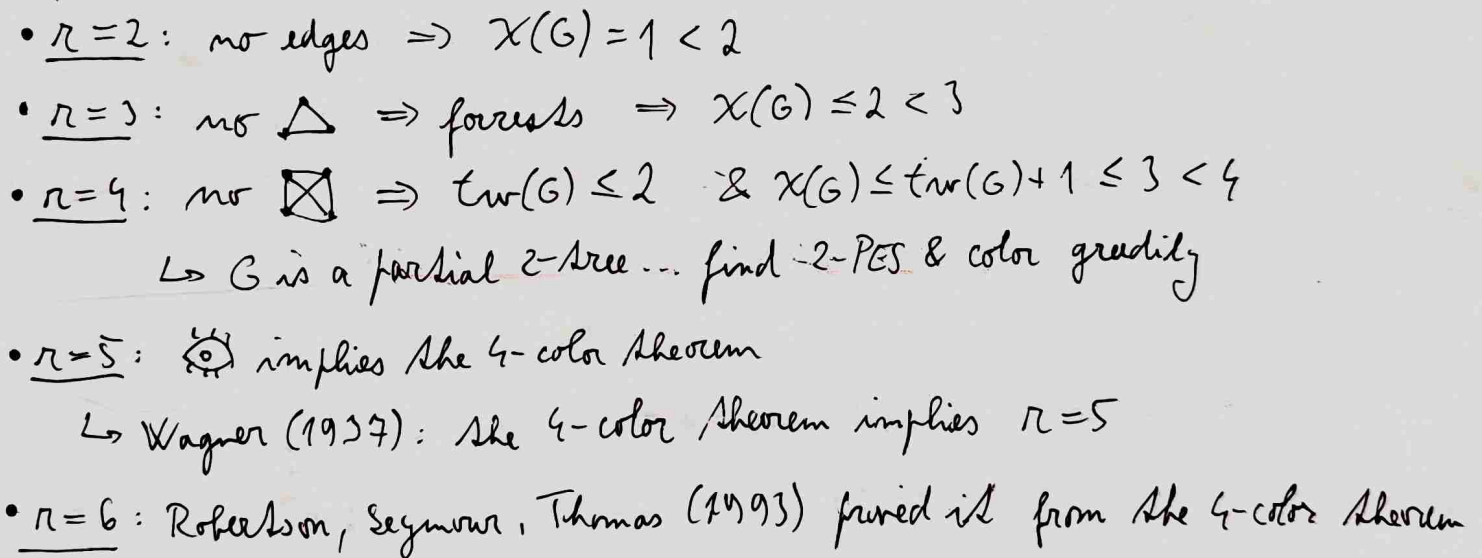 • r=2: no edges ⇒ χ(G) = 1 < 2
• r=3: no △ ⇒ forrests ⇒ χ(G) ≤ 2 < 3
• r=4: no ⇒ tw(G) ≤ 2 & χ(G) ≤ tw(G)+1 ≤ 3 < 4
↳ G is a partial 2-tree... find 2-PES & color greedily
• r=5: implies the 4-color theorem
↳ Wagner (1937): the 4-color theorem implies r=5
• r=6: Robertson, Seymour, Thomas (1993) proved it from the 4-color theorem